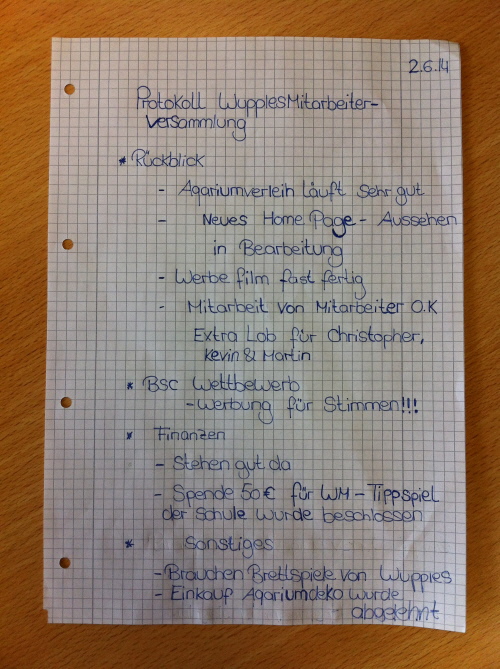 2.6.14
Protokoll WupplesMitarbeiter-
versammlung
* Rückblick
- Aqariumverleih läuft sehr gut
- Neues Home Page - Aussehen
in Bearbeitung
- Werbe film fast fertig
- Mitarbeit von Mitarbeiter O.K
Extra Lob für Christopher,
Kevin & Martin
* BSC Wettbewerb
- Werbung für Stimmen!!!
* Finanzen
- Stehen gut da
- Spende 50€ für WM - Tippspiel
der Schule wurde beschlossen
* Sonstiges
- Brauchen Brettspiele von Wupples
- Einkauf Aqariumdeko wurde
abgelehnt